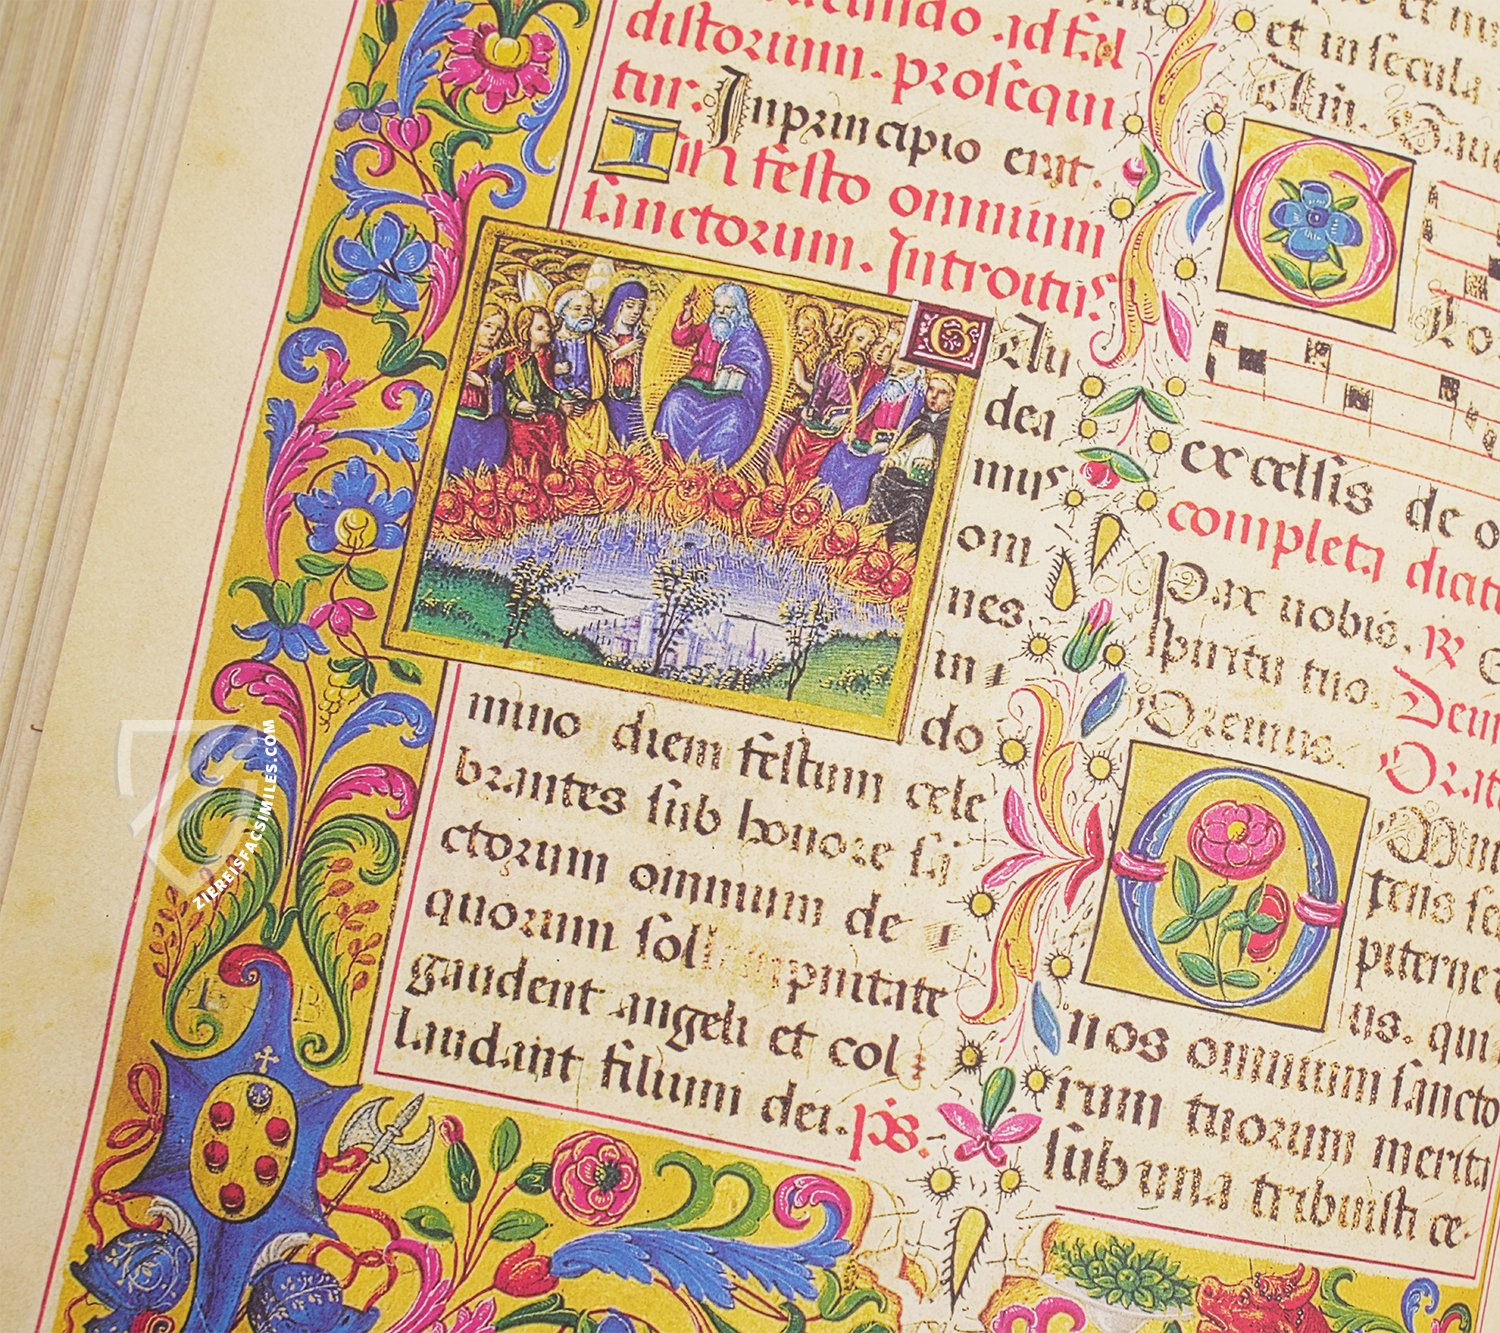 distorum. prosequi
tur: Inprincipio erat.
In festo omnium
sanctorum. Introitus
Gau
dea
mus
om
nes
in
do
mino diem festum cele
brantes sub honore sā
ctorum omnium de
quorum sol pnitate
gaudent angeli et col
laudant filium dei. ps.
et in secula
Am̄.
G lo
excelsis de o
completa dicit
Pax uobis. R
spiritu tuo.
Oremus. Orat
Omni
tens se
piterne
us. qui
nos omnium sancto
rum tuorum merita
sub una tribuisti ce
ZIEREISFACSIMILES.COM